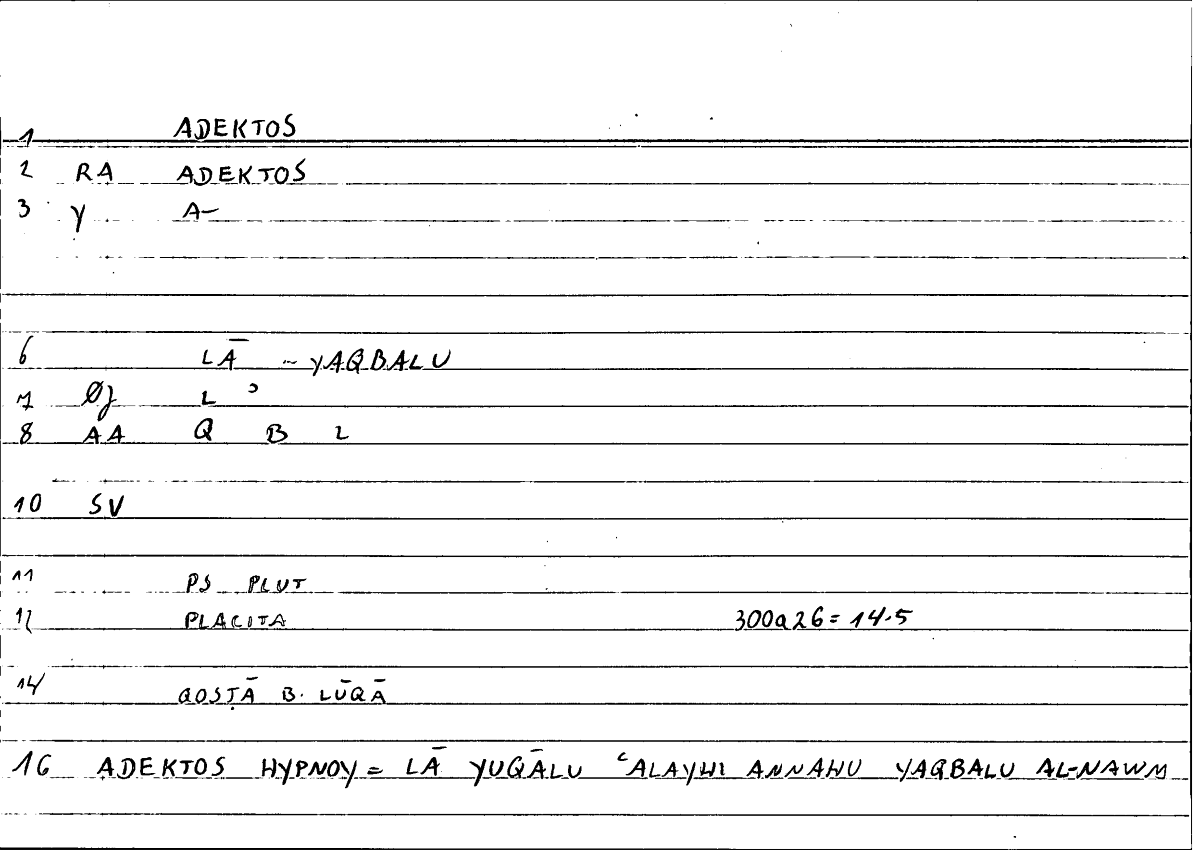 1 ADEKTOS
2 RA ADEKTOS
3 Y A-
6 LĀ - YAQBALU
7 ØJ L ʾ
8 AA Q B L
10 SV
11 PS PLUT
12 PLACITA 300a26 = 14.5
14 QOSṬĀ B. LŪQĀ
16 ADEKTOS HYPNOY = LĀ YUQĀLU ʿALAYHI ANNAHU YAQBALU AL-NAWM